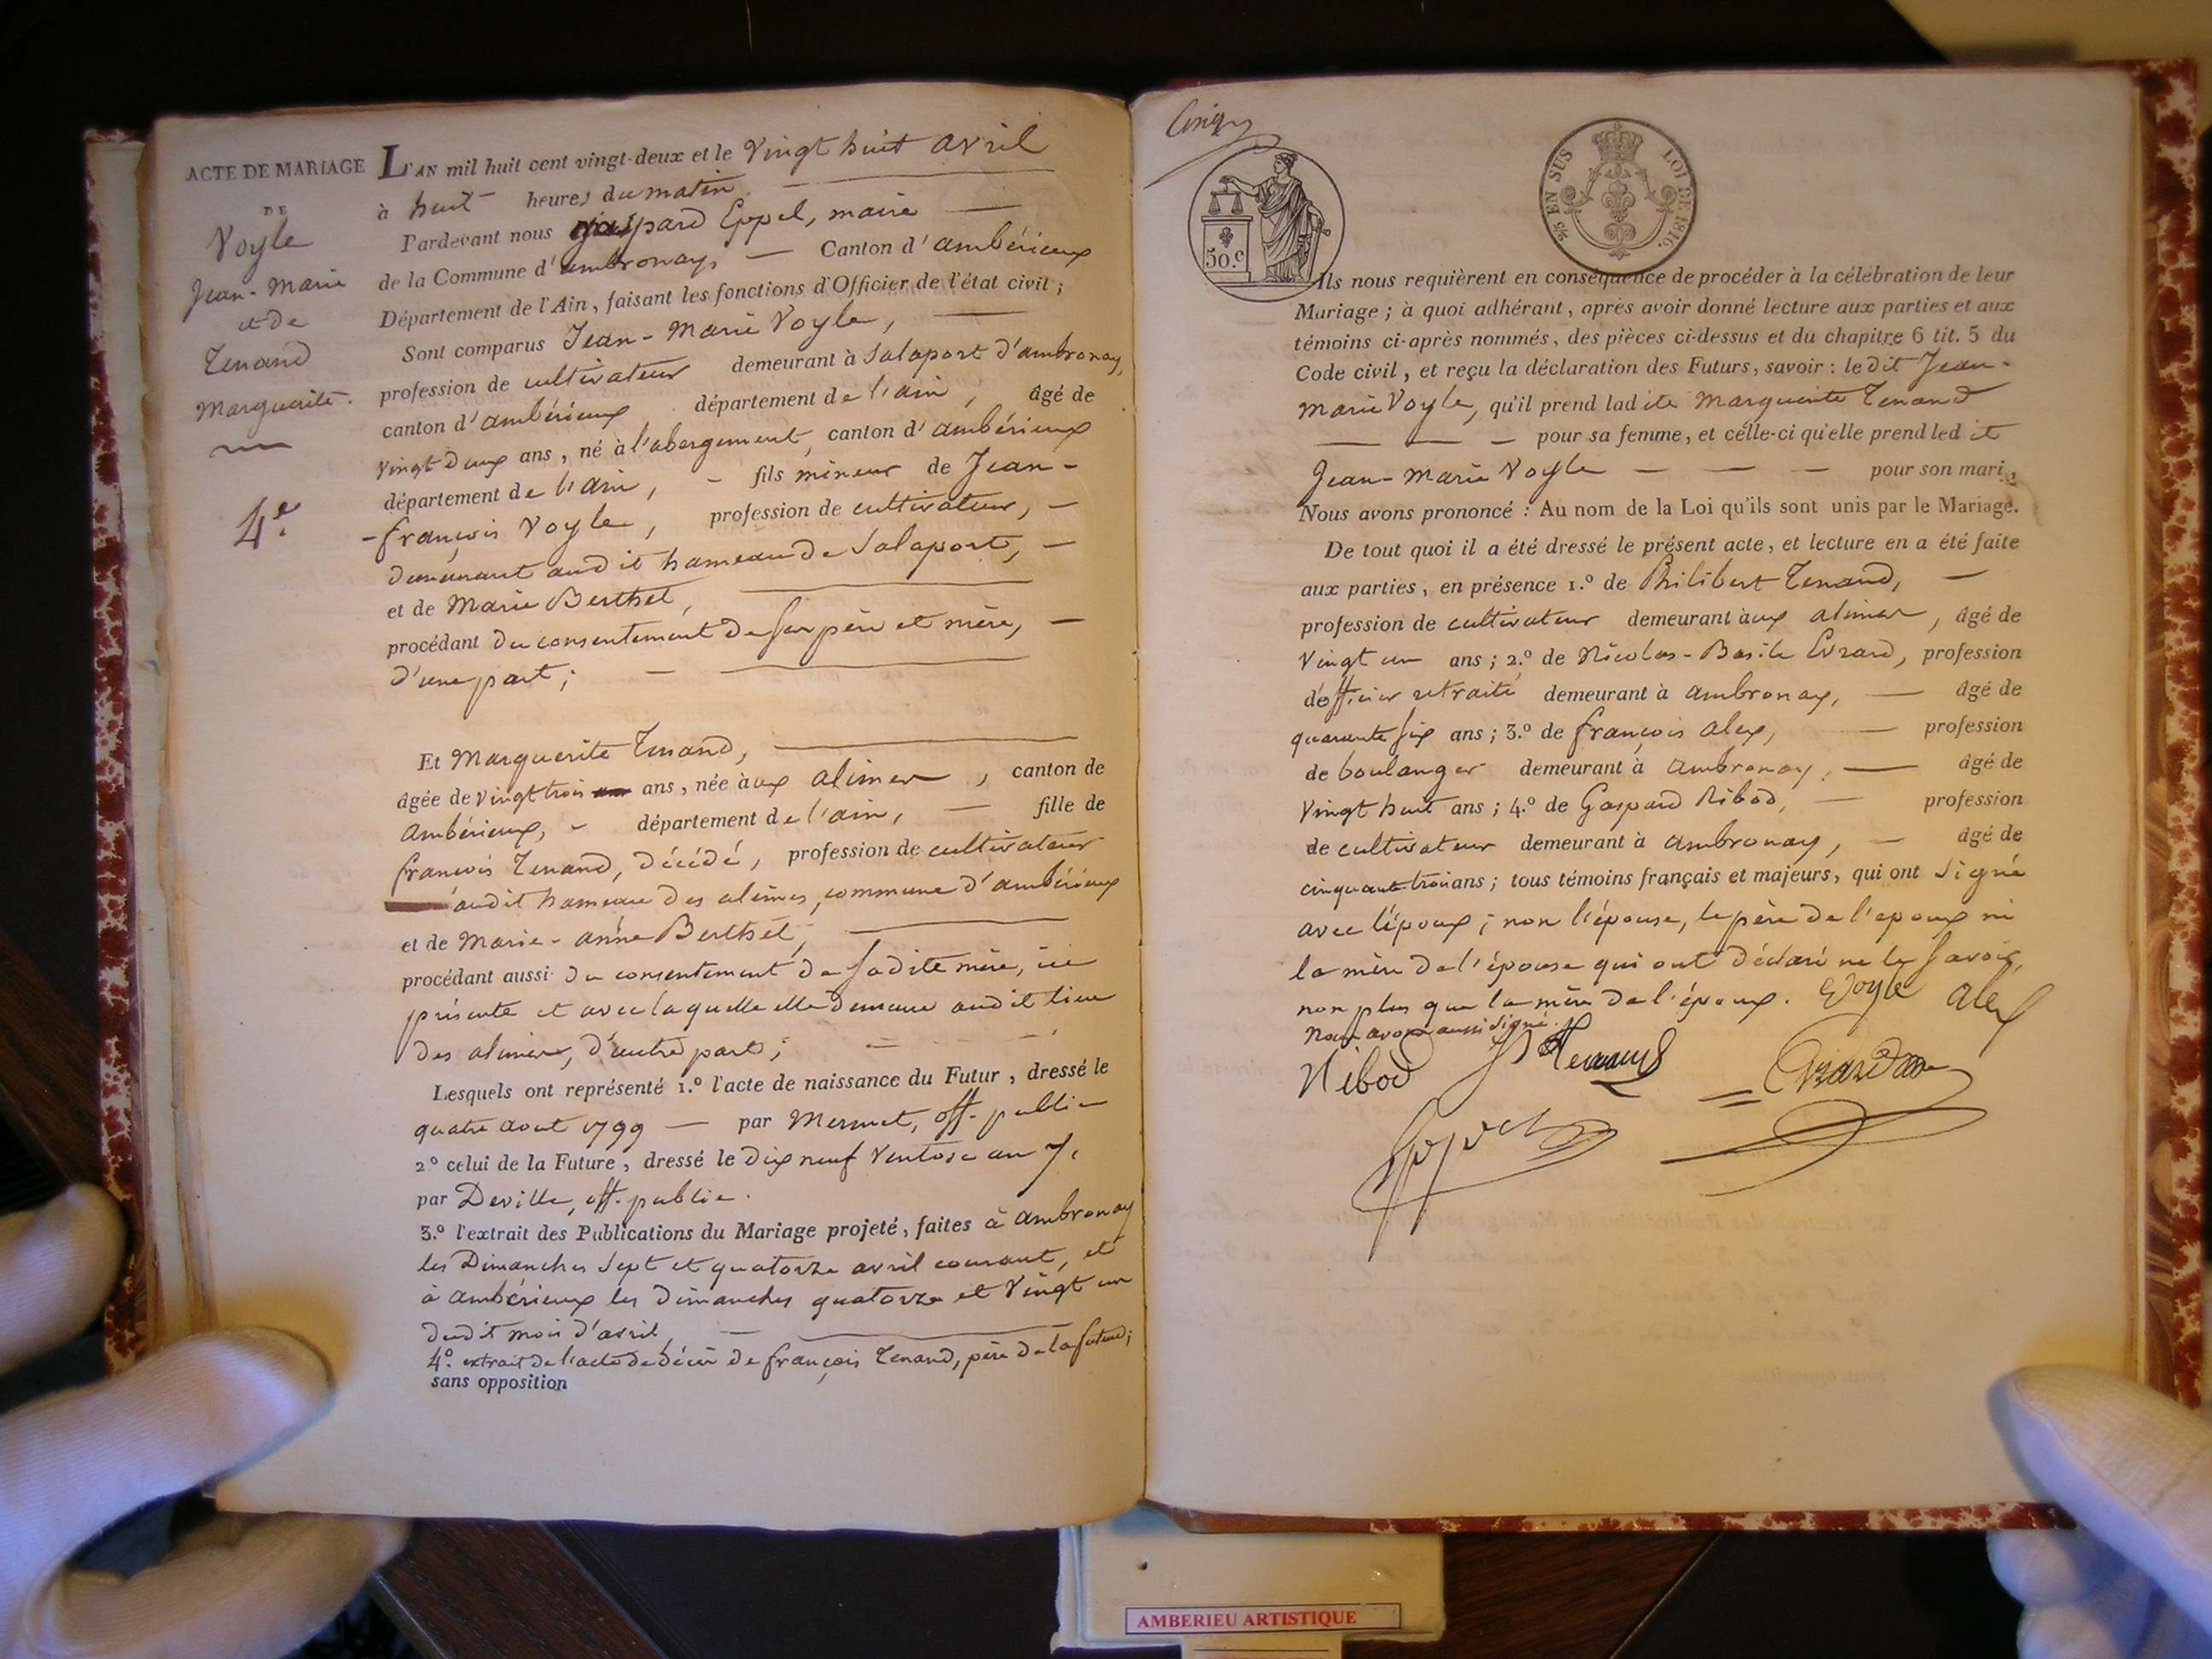 ACTE DE MARIAGE
DE
Voyle
Jean-Marie
et de
Tenand
Marguerite.
4e.
L'AN mil huit cent vingt-deux et le vingt huit avril
à huit heures du matin.
Pardevant nous gaspard Eppel, maire
de la Commune d'ambronay, Canton d'ambérieux
Département de l'Ain, faisant les fonctions d'Officier de l'état civil;
Sont comparus Jean-Marie Voyle,
profession de cultivateur demeurant à Salaport d'ambronay,
canton d'ambérieux département de l'ain, âgé de
vingt deux ans, né à l'abergement, canton d'ambérieux
département de l'ain, fils mineur de Jean-
-françois Voyle, profession de cultivateur,
demeurant audit hameau de Salaport,
et de Marie Berthet,
procédant du consentement de ses père et mère,
d'une part;
Et Marguerite Tenand,
âgée de vingt trois ans, née aux alimes, canton de
ambérieux, département de l'ain, fille de
françois Tenand, décédé, profession de cultivateur
audit hameau des alimes, commune d'ambérieux
et de Marie-anne Berthet,
procédant aussi du consentement de sadite mère, ici
présente et avec laquelle elle demeure audit lieu
des alimes, d'autre part;
Lesquels ont représenté 1.º l'acte de naissance du Futur, dressé le
quatre aout 1799 par Mermet, off. public
2º celui de la Future, dressé le dix neuf Ventose an 7,
par Deville, off. public.
3.º l'extrait des Publications du Mariage projeté, faites à ambronay
les Dimanches sept et quatorze avril courant, et
à ambérieux les dimanches quatorze et vingt un
dudit mois d'avril,
4º. extrait de l'acte de décès de françois Tenand, père de la future;
sans opposition
50.c
5/5 EN SUS LOI DE 1816.
Ils nous requièrent en conséquence de procéder à la célébration de leur
Mariage; à quoi adhérant, après avoir donné lecture aux parties et aux
témoins ci-après nommés, des pièces ci-dessus et du chapitre 6 tit. 5 du
Code civil, et reçu la déclaration des Futurs, savoir: le dit Jean-
Marie Voyle, qu'il prend ladite Marguerite Tenand
pour sa femme, et celle-ci qu'elle prend ledit
Jean-Marie Voyle pour son mari,
Nous avons prononcé: Au nom de la Loi qu'ils sont unis par le Mariage.
De tout quoi il a été dressé le présent acte, et lecture en a été faite
aux parties, en présence 1.º de Philibert Tenand,
profession de cultivateur demeurant aux alimes, âgé de
vingt un ans; 2.º de Nicolas-Basile Evrard, profession
d'officier retraité demeurant à ambronay, âgé de
quarante six ans; 3.º de françois alex, profession
de boulanger demeurant à ambronay, âgé de
vingt huit ans; 4.º de Gaspard Nibod, profession
de cultivateur demeurant à ambronay, âgé de
cinquante trois ans; tous témoins français et majeurs, qui ont signé
avec l'époux; non l'épouse, le père de l'époux ni
la mère de l'épouse qui ont déclaré ne le savoir,
non plus que la mère de l'époux. Voyle alex
Nous avons aussi signé.
Nibod Tenand Evrard
Eppel
AMBERIEU ARTISTIQUE